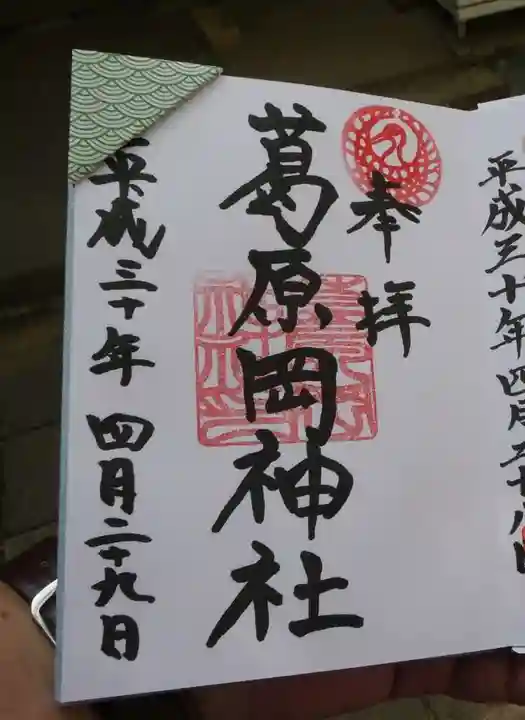 平成三十年四月二十八日
奉拝
葛原岡神社
平成三十年 四月二十九日